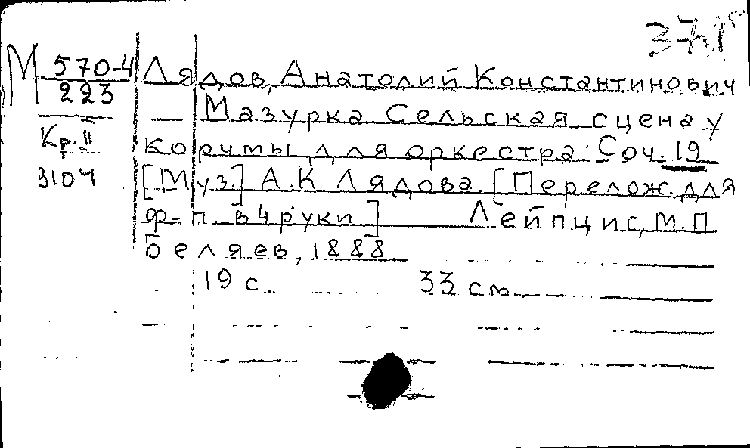 371
М 570-4 Лядов, Анатолий Константинович
223 Мазурка Сельская сцена у
Кр. II корчмы для оркестра Соч. 19
3104 [Муз.] А. К Лядова. [Перелож. для
ф-п. в 4 руки] Лейпциг, М. П
Беляев, 1888
19 с. 33 см